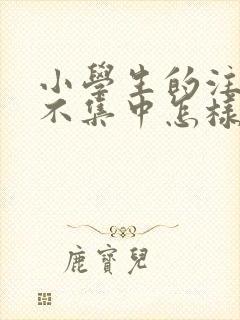 小學生的注
不集中怎樣
鹿寶兒